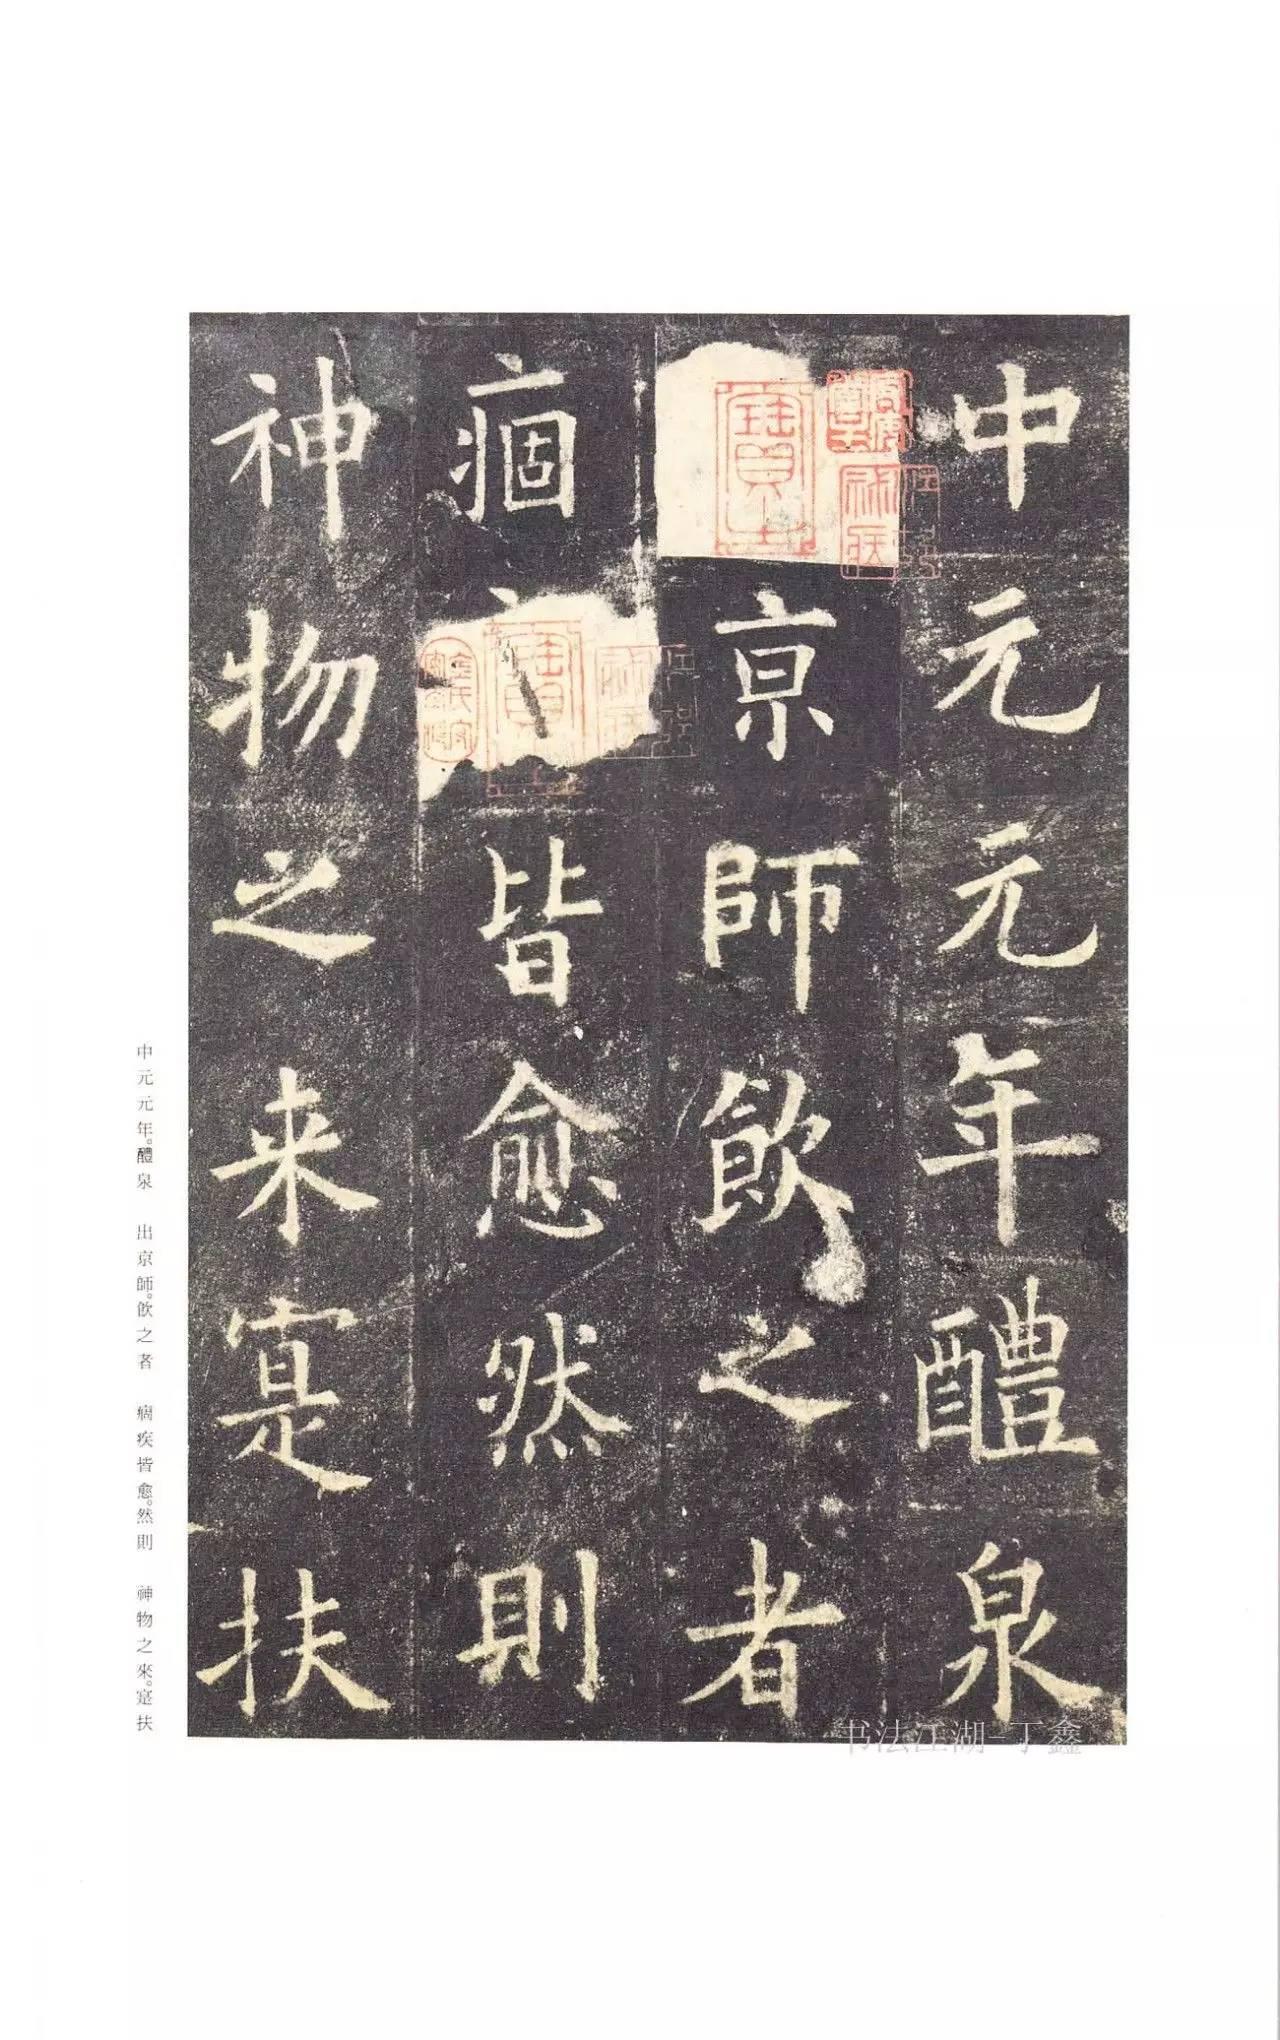 中元元年醴泉
京師飲之者
痼皆愈然則
神物之来寔扶
中元元年。醴泉 出京師。飲之者 痼疾皆愈。然則 神物之來。寔扶
书法江湖-丁鑫